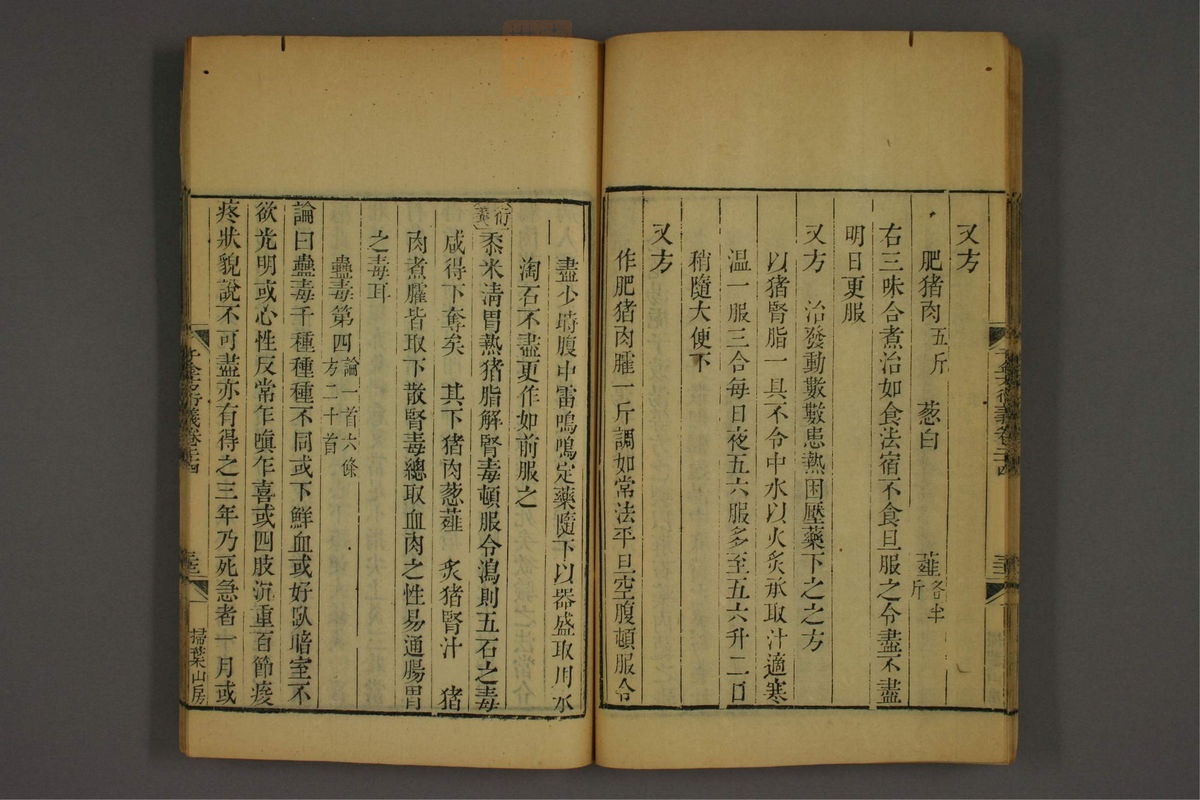 又方
肥猪肉五斤 葱白 薤各半斤
右三味合煮治如食法宿不食旦服之令盡不盡
明日更服
又方 治發動數數患熱困壓藥下之之方
以猪腎脂一具不令中水以火炙承取汁適寒
温一服三合每日夜五六服多至五六升二日
稍隨大便下
又方
作肥猪肉臛一斤調如常法平旦空腹頓服令
盡少時腹中雷鳴鳴定藥隨下以器盛取用水
淘石不盡更作如前服之
衍義 黍米清胃熱猪脂解腎毒頓服令瀉則五石之毒
咸得下奪矣 其下猪肉葱薤 炙猪腎汁 猪
肉煮臛皆取下散腎毒總取血肉之性易通腸胃
之毒耳
蠱毒第四論一首六條方二十首
論曰蠱毒千種種種不同或下鮮血或好臥暗室不
欲光明或心性反常乍嗔乍喜或四肢沉重百節痠
疼狀貌說不可盡亦有得之三年乃死急者一月或
千金方衍義卷二十四
掃葉山房